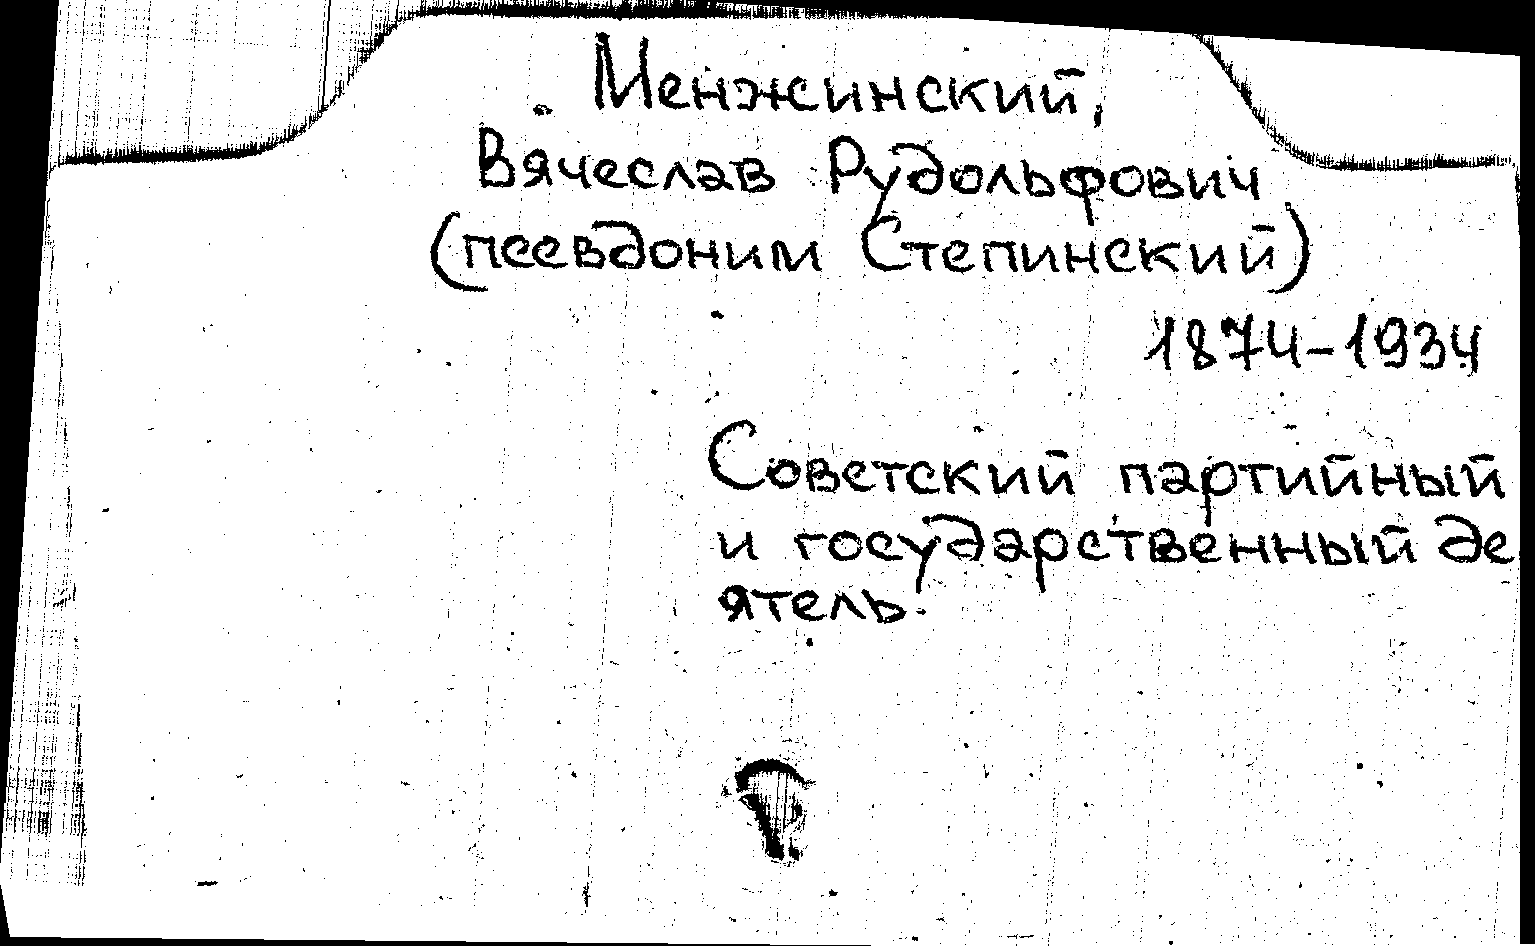 Менжинский,
Вячеслав Рудольфович
(псевдоним Степинский)
1874-1934
Советский партийный
и государственный де
ятель.